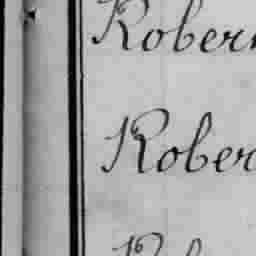 Robern
Rober